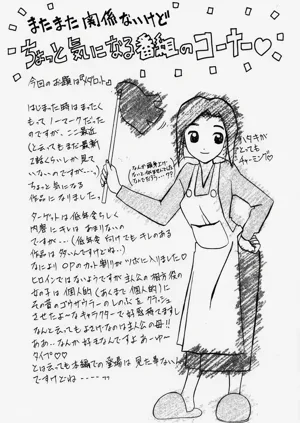 またまた関係ないけど
ちょっと気になる番組のコーナー♡
今回のお題は『メダロット』
はじまった時はまったく
もってノーマークだった
のですが、ここ最近
(と云ってもまだ最新
2話くらいしか見て
いないのですが…。)
ちょっと気になる
作品になりました。
ターゲットは低年令らしく
内容にキレはあまりないの
ですが…(低年令向けでもキレのある
作品は多いんですけどね…)
なによりOPのカット割りがツボに入りました♡
ヒロインではないようですが主人公の
女の子は個人的(あくまで個人的)に
その昔のゴウザウラーのしのぶをクラッシュ
させたよーなキャラクターで好感持てますし
なんと云ってもよさげなのは主人公の母!!
ああ…なんか好きなんですよあーゆー
タイプ♡♡
とは云っても本編での登場は見た事ないん
ですけどね
ハタキが
とっても
チャーミング♡